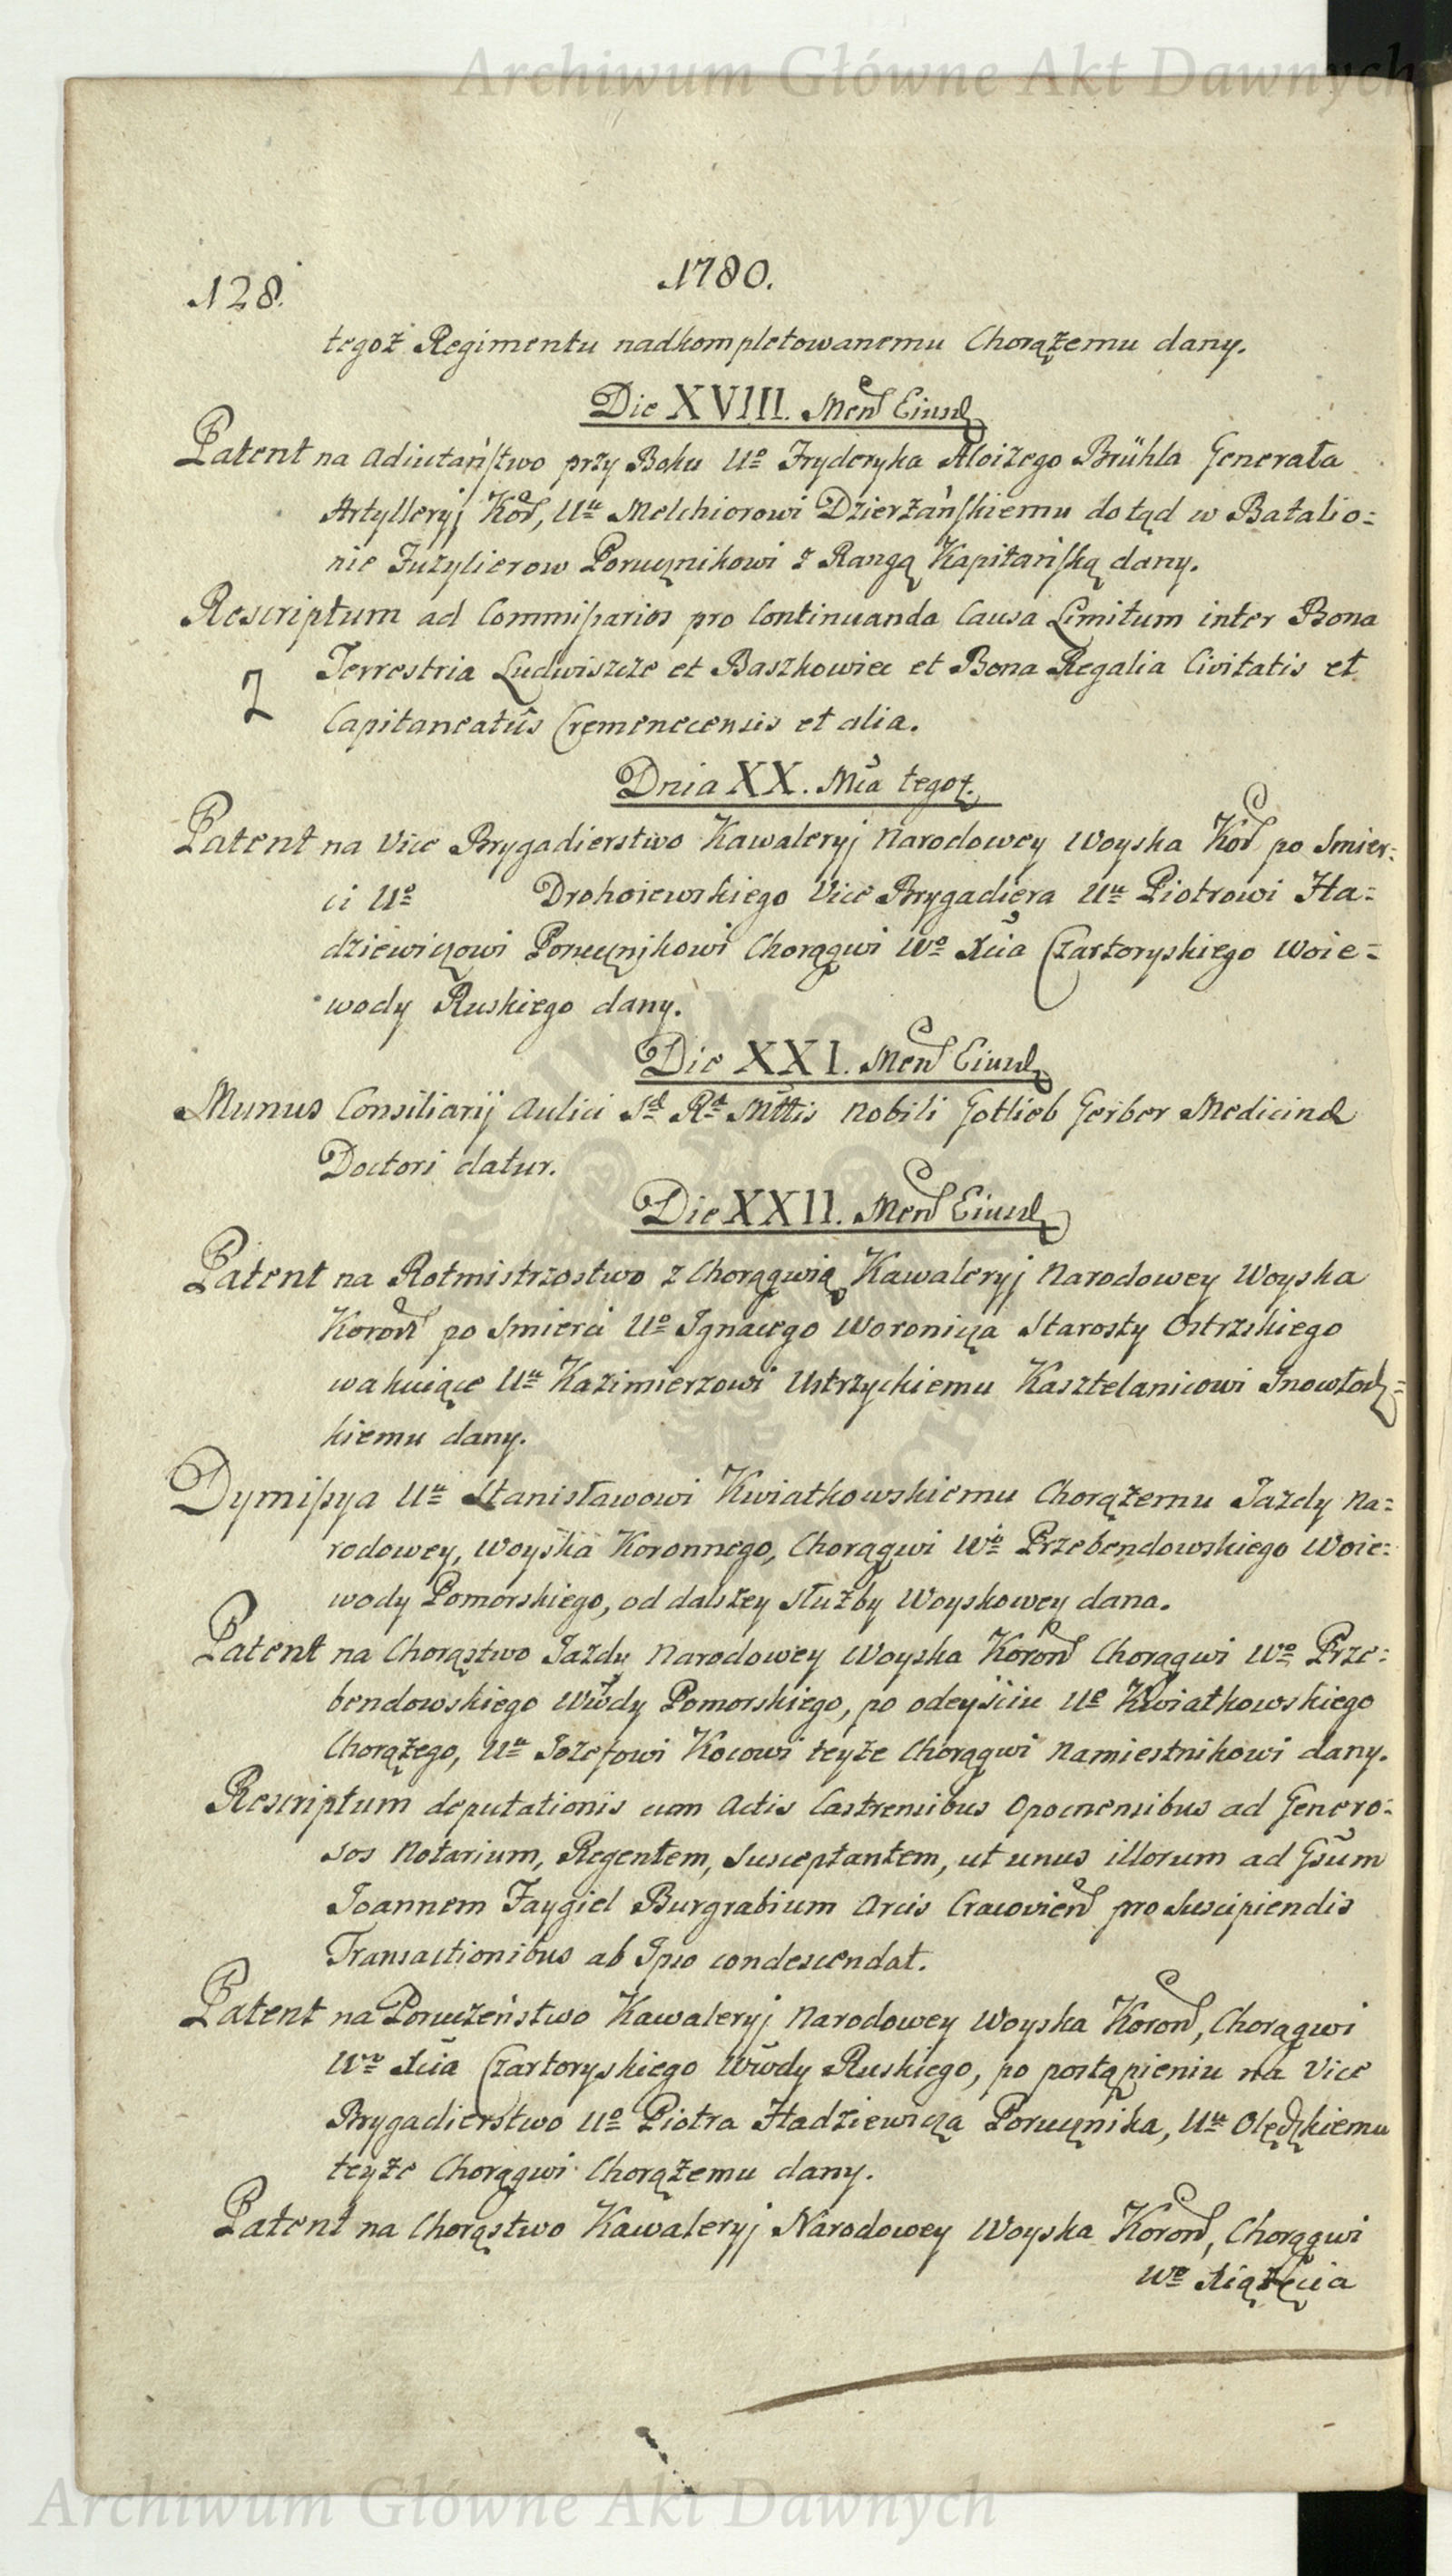 Archiwum Główne Akt Dawnych
128.
1780.
tegoż Regimentu nadkompletowanemu Chorążemu dany.
Die XVIII. Men Eiusd
Patent na Adiutańſtwo przy Boku Uo Fryderyka Aloizego Brühla Generała
Artylleryj Kor, Uu Melchiorowi Dzierżańſkiemu dotąd w Batalio=
nie Fuzylierow Porucznikowi z Rangą Kapitańſką dany.
Rescriptum ad Commiſsarios pro Continuanda Causa Limitum inter Bona
Terrestria Ludwiszcze et Baszkowiec et Bona Regalia Civitatis et
Capitaneatûs Cremenecensis et alia.
Dnia XX. Mca tegoż.
Patent na Vice Brygadierstwo Kawaleryj Narodowey Woyska Kor po Smier=
ci Uo Drohoiewskiego Vice Brygadiera Uu Piotrowi Ha=
dziewiczowi Porucznikowi Chorągwi Wo Xcia Czartoryskiego Woie=
wody Ruskiego dany.
Die XXI. Men Eiusd
Munus Consiliarij Aulici Sæ Ræ Mttis Nobili Gotlieb Gerber Medicinæ
Doctori datur.
Die XXII. Men Eiusd
Patent na Rotmistrzostwo z Chorągwią Kawaleryj Narodowey Woyska
Koron po Smierci Uo Ignacego Woronicza Starosty Ostrzskiego
wakuiące Uu Kazimierzowi Ustrzyckiemu Kasztelanicowi Inowłodz=
kiemu dany.
Dymiſsya Uu Stanisławowi Kwiatkowskiemu Chorążemu Jazdy Na=
rodowey, Woyska Koronnego, Chorągwi Wo Przebendowskiego Woie=
wody Pomorskiego, od dalszey służby Woyskowey dana.
Patent na Chorąstwo Jazdy Narodowey Woyska Koron Chorągwi Wo Prze=
bendowskiego Wwody Pomorskiego, po odeyściu Uo Kwiatkowskiego
Chorążego, Uu Jozefowi Kocowi teyże Chorągwi Namiestnikowi dany.
Rescriptum deputationis cum Actis Castrensibus Opocnensibus ad Genero=
sos Notarium, Regentem, Susceptantem, ut unus illorum ad Gsum
Joannem Faygiel Burgrabium Arcis Cracovien pro Suscipiendis
Transactionibus ab Ipso condescendat.
Patent na Porucżeństwo Kawaleryj Narodowey Woyska Koron, Chorągwi
Wo Xcia Czartoryskiego Wwody Ruskiego, po postąpieniu na Vice
Brygadierstwo Uo Piotra Hadziewicza Porucznika, Uu Olędzkiemu
teyże Chorągwi Chorążemu dany.
Patent na Chorąstwo Kawaleryj Narodowey Woyska Koron, Chorągwi
Wo Xiążęcia
Archiwum Główne Akt Dawnych